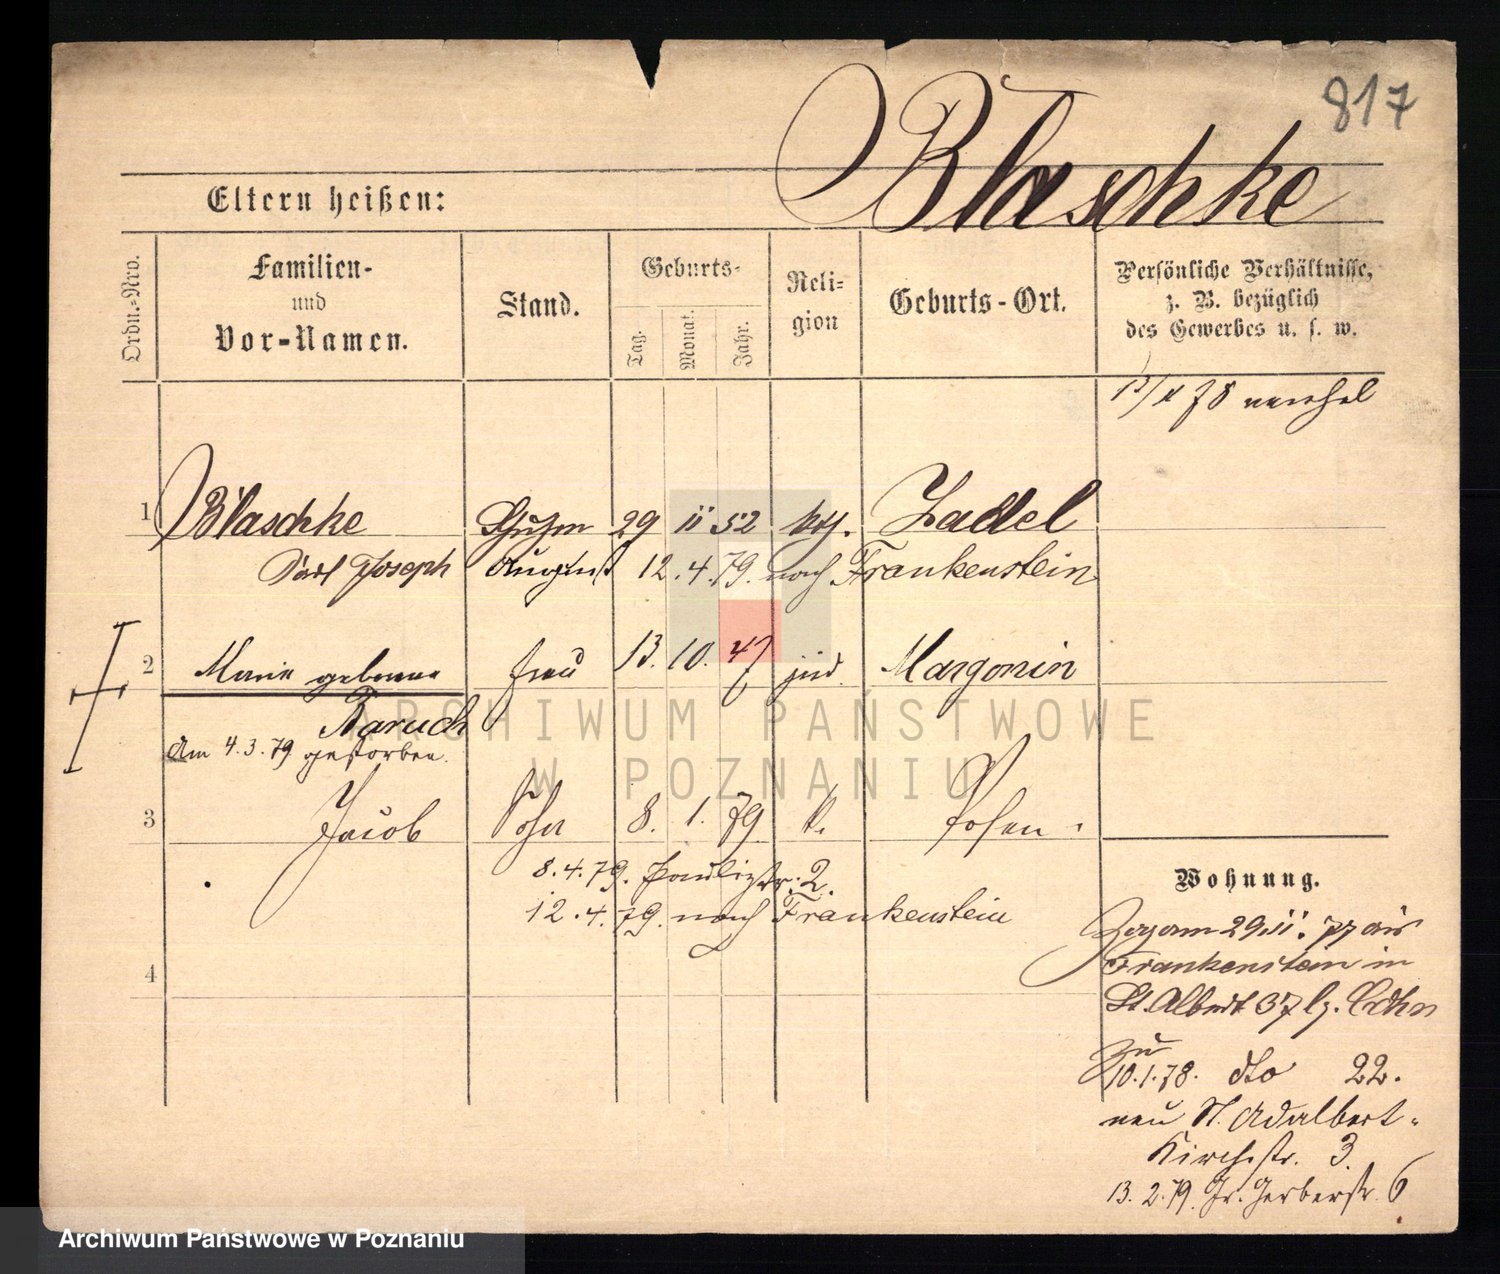 817
Blaschke
Eltern heißen:
Ordn.-Nro.
Familien-
und
Vor-Namen.
Stand.
Geburts-
Tag.
Monat.
Jahr.
Reli-
gion
Geburts-Ort.
Persönliche Verhältnisse,
z. B. bezüglich
des Gewerbes u. s. w.
78
1 Blaschke 29 11 52 kth. Zadel
Carl Joseph August 12.4.79. nach Frankenstein
2 Marie geborene Frau 13. 10. 47 jüd. Margonin
Baruch
Am 4.3.79 gestorben.
3 Jacob Sohn 8. 1. 79 k. Posen.
8.4.79. Paulistr. 2.
12.4.79. nach Frankenstein
4
Wohnung.
Zog am 29.11. 77 aus
Frankenstein in
St. Albert 37
zu
10.1.78. dto 22.
neu St. Adalbert-
Kirchstr. 3.
13.2.79. Gr. Gerberstr. 6
ARCHIWUM PAŃSTWOWE
W POZNANIU
Archiwum Państwowe w Poznaniu